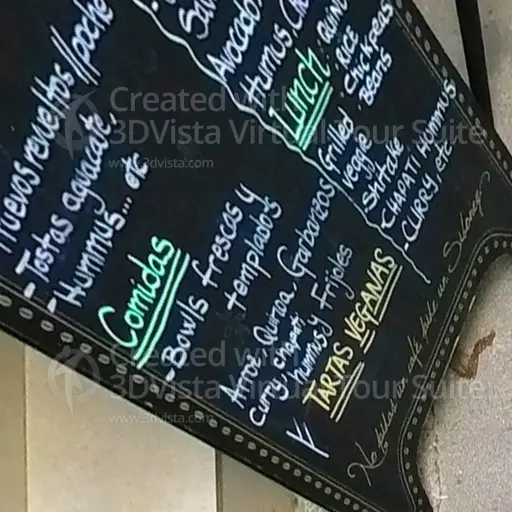 Huevos revueltos //poche
- Tostas aguacate,
- Hummus... etc
Comidas
- Bowls frescos y
templados
Arroz Quinoa, Garbanzos
Curry chapati
hummus y Frijoles
Y TARTAS VEGANAS
Avocado
Humus,
Lunch
QUINO
RICE
Chickpeas
Beans
Grilled
Veggie
Shitake
CHAPATI HUMMUS
CURRY, etc
Created with
3DVista Virtual Tour Suite
www.3dvista.com
Created with
3DVista Virtual Tour Suite
www.3dvista.com